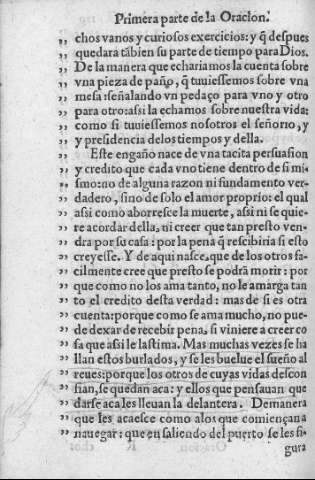 Primera parte de la Oracion.
,, chos vanos y curiosos exercicios: y q̃ despues
,, quedara tãbien su parte de tiempo para Dios.
,, De la manera que echariamos la cuenta sobre
,, vna pieza de paño, q̃ tuuiessemos sobre vna
,, mesa: señalando vn pedaço para vno y otro
,, para otro: assi la echamos sobre nuestra vida:
,, como si tuuiessemos nosotros el señorio, y
,, y presidencia de los tiempos y della.
,, Este engaño nace de vna tacita persuasion
,, y credito que cada vno tiene dentro de si mi-
,, smo: no de alguna razon ni fundamento ver-
,, dadero, sino de solo el amor proprio: el qual
,, assi como aborresce la muerte, assi ni se quie-
,, re acordar della, ni creer que tan presto ven-
,, dra por su casa: por la pena q̃ rescibiria si esto
,, creyesse. Y de aqui nasce, que de los otros fa-
,, cilmente cree que presto se podrã morir: por
,, que como no los ama tanto, no le amarga tan
,, to el credito desta verdad: mas de si es otra
,, cuenta: porque como se ama mucho, no pue-
,, de dexar de recebir pena, si viniere a creer co
,, sa que assi le lastima. Mas muchas vezes se ha
,, llan estos burlados, y se les buelue el sueño al
,, reues: porque los otros de cuyas vidas descon
,, fian, se quedan aca: y ellos que pensauan que
,, darse aca les lleuan la delantera. Demanera
,, que les acaesce como a los que comiençan a
,, nauegar: que en saliendo del puerto se les fi-
gura